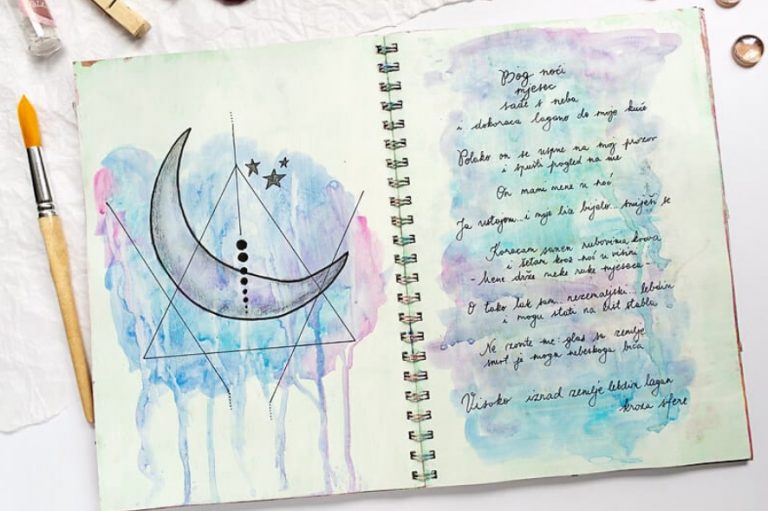 Bog noći
mjesec
sađe s neba
i dokoraca lagano do moje kuće
Polako on se uspne na moj prozor
i spušti pogled na me
On mami mene u noć
Ja ustajem... i moje lice bijelo... smiješi se
Koracam sanen rubovima krova
i šetam kroz noć u visini
- Mene drže neke ruke mjeseca -
O tako lak sam... nezemaljski... lebdim
i mogu stati na list stabla
Ne zovite me: glas sa zemlje
smrt je moga nebeskoga bića
Visoko iznad zemlje lebdim lagan
kroza sfere